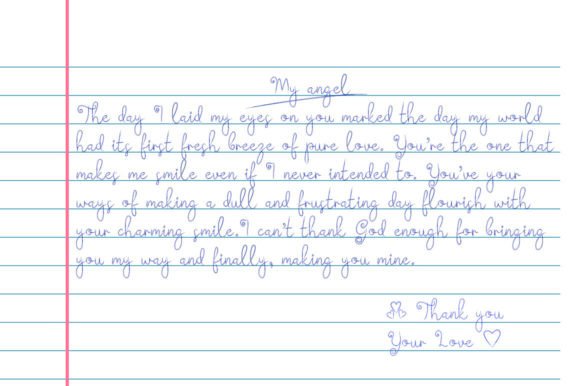 My angel
The day I laid my eyes on you marked the day my world
had its first fresh breeze of pure love. You're the one that
makes me smile even if I never intended to. You've your
ways of making a dull and frustrating day flourish with
your charming smile.I can't thank God enough for bringing
you my way and finally, making you mine.
Thank you
Your Love ♡